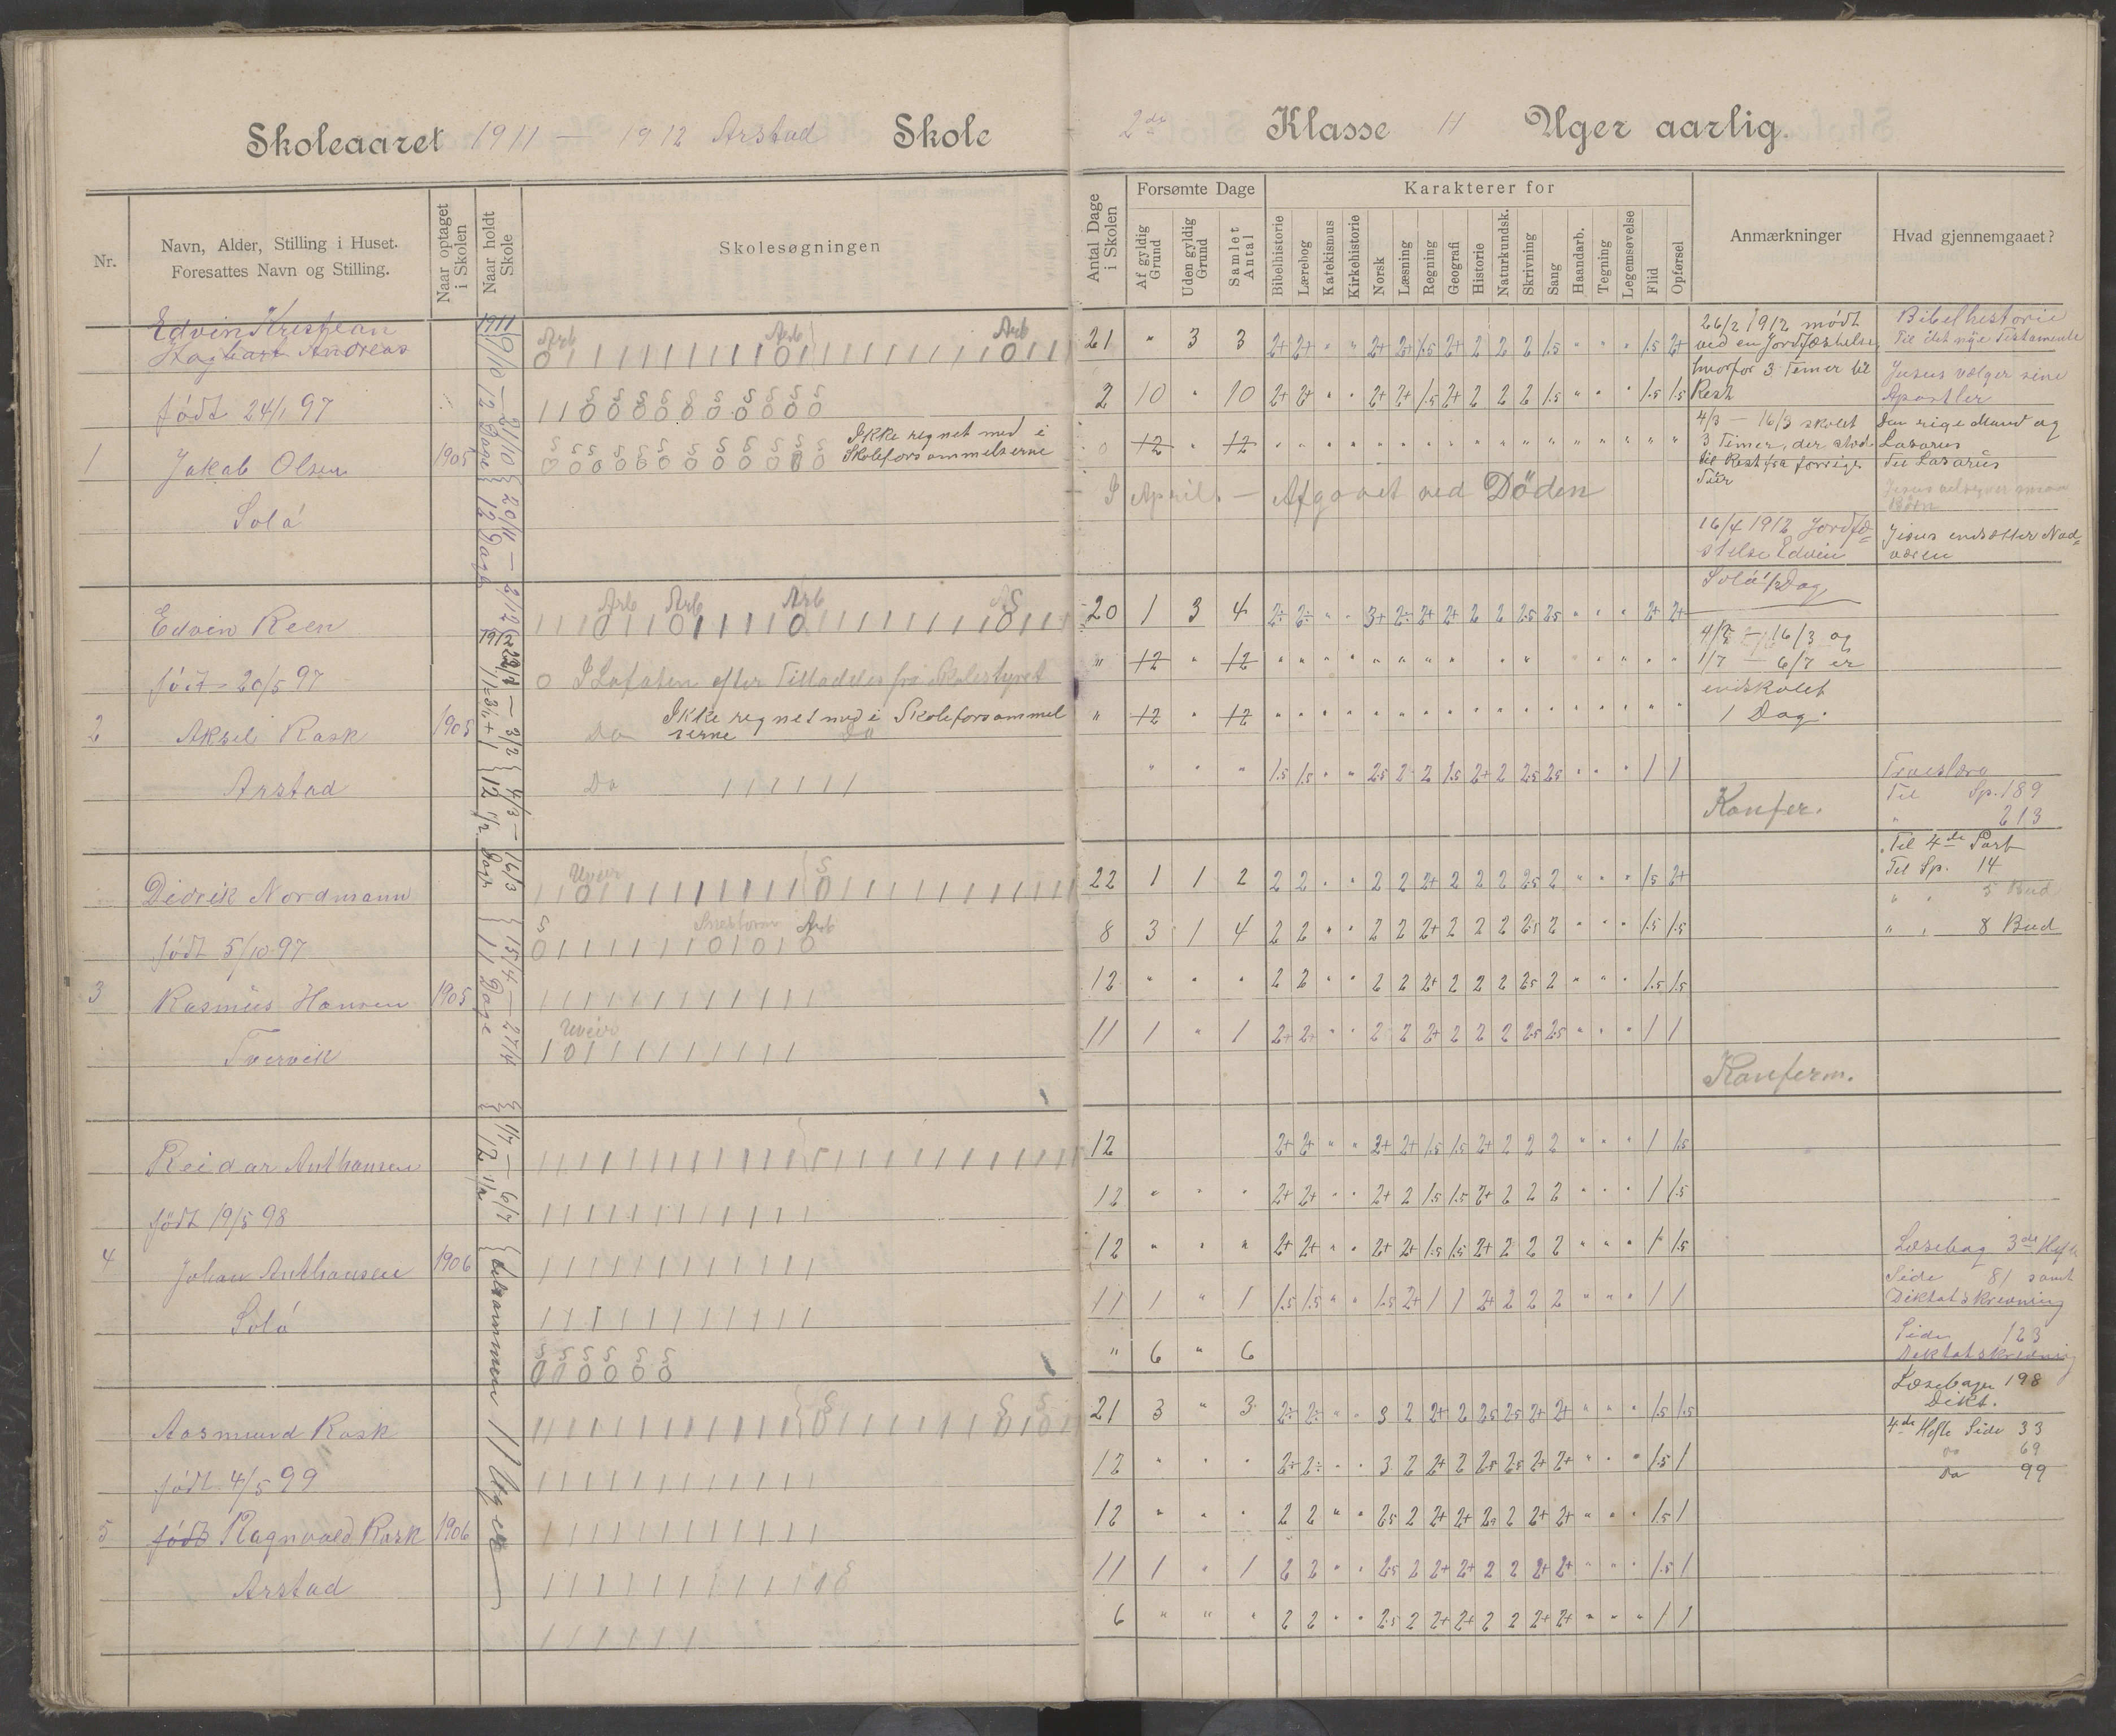 Skoleaaret 1911 — 1912 Arstad Skole
2de Klasse 11 Uger aarlig.
Nr.
Navn, Alder, Stilling i Huset.
Foresattes Navn og Stilling.
Naar optaget i Skolen
Naar holdt Skole
Skolesøgningen
Antal Dage i Skolen
Forsømte Dage
Af gyldig Grund
Uden gyldig Grund
Samlet Antal
Karakterer for
Bibelhistorie
Lærebog
Katekismus
Kirkehistorie
Norsk
Læsning
Regning
Geografi
Historie
Naturkundsk.
Skrivning
Sang
Haandarb.
Tegning
Legemsøvelse
Flid
Opførsel
Anmærkninger
Hvad gjennemgaaet?
Edvin Kristjean
Andreas
født 24/1 97
1 Jakab Olsen 1905
Solå
Arb Arb Arb
Ikke regnet med i
Skoleforsømmelserne
21 " 3 3 2+ 2+ " " 2+ 2+ 1.5 2+ 2 2 2 1.5 " " " 1.5 2+
2 10 " 10 2+ 2+ " " 2+ 2+ 1.5 2+ 2 2 2 1.5 " " " 1.5 1.5
0 12 " 12
I April. — Afgaaet ved Döden
26/2 1912 mødt
ved en Jordfæstelse,
hvorfor 3 Timer til
Rest
4/3 — 16/3 skolet
3 Timer, der stod
til Rest fra forrige
16/4 1912 Jordfæ=
stelse Edvin
Solå 1/2 Dag
Bibelhistorie
Til det nye Testamente
Jesus vælger sine
Apostler
Den rige Mand og
Lasarus
Til Lasarus
Jesus velsigner smaa
Børn
Jesus indsætter Nad=
veren
Edvin Reen
født 20/5 97
2 Aksel Rask 1905
Arstad
Arb Arb Arb
I Lofoten efter Tilladelse fra Skolestyret
Ikke regnet med i Skoleforsømmel
serne
Do Do
Do
20 1 3 4 2÷ 2÷ " " 3+ 2÷ 2+ 2+ 2 2 2.5 2.5 " " " 2+ 2+
" 12 " 12
" 12 " 12
" " " 1.5 1.5 " " 2.5 2 2 1.5 2+ 2 2.5 2.5 " " " 1 1
4/3 — 16/3 og
1/7 — 6/7 er
indskolet
1 Dag.
Konfer.
Troeslære
Til Sp. 189
" 213
Til 4de Part
Til Sp. 14
" " 5 Bud
" " 8 Bud
Didrik Nordmann
født 5/10 97
3 Rasmus Hansen 1905
Tvervik
Uveir S
S Arb
Uveir
22 1 1 2 2 2 " " 2 2 2+ 2 2 2 2.5 2 " " " 1.5 2+
8 3 1 4 2 2 " " 2 2 2+ 2 2 2 2.5 2 " " " 1.5 1.5
12 " " " 2 2 " " 2 2 2+ 2 2 2 2.5 2 " " " 1.5 1.5
11 1 " 1 2+ 2+ " " 2 2 2+ 2 2 2 2.5 2.5 " " " 1 1
Konferm.
Reidar Anthonsen
født 19/5 98
4 Johan Anthonsen 1906
Solå
12 2+ 2+ " " 2+ 2+ 1.5 1.5 2+ 2 2 2 " " " 1 1.5
12 " " " 2+ 2+ " " 2+ 2 1.5 1.5 2+ 2 2 2 " " " 1 1.5
12 " " " 2+ 2+ " " 2+ 2+ 1.5 1.5 2+ 2 2 2 " " " 1 1.5
11 1 " 1 1.5 1.5 " " 1.5 2+ 1 1 2+ 2 2 2 " " " 1 1
" 6 " 6
Læsebog 3de Hefte
Side 81 samt
Diktatskrivning
Side 123
Diktatskrivning
Læsebogen 198
Dikt.
4de Hefte Side 33
do 69
do 99
Aasmund Rask
født 4/5 99
5 født Ragnvald Rask 1906
Arstad
21 3 " 3 2÷ 2÷ " " 3 2 2+ 2 2.5 2.5 2+ 2+ " " " 1.5 1.5
12 " " " 2+ 2÷ " " 3 2 2+ 2 2.5 2.5 2+ 2+ " " " 1.5 1
12 " " " 2 2 " " 2.5 2 2+ 2+ 2.5 2 2+ 2+ " " " 1.5 1
11 1 " 1 2 2 " " 2.5 2 2+ 2+ 2 2 2+ 2+ " " " 1.5 1
6 " " " 2 2 " " 2.5 2 2+ 2+ 2 2 2+ 2+ " " " 1 1
1911
9/10 — 21/10 12 Dage
20/11 — 2/12 12 Dage
1912
22/1 — 3/2
4/3 — 16/3 12 1/2 Dage
15/4 — 27/4 11 Dage
1/7 — 6/7
tilsammen 11 Uger